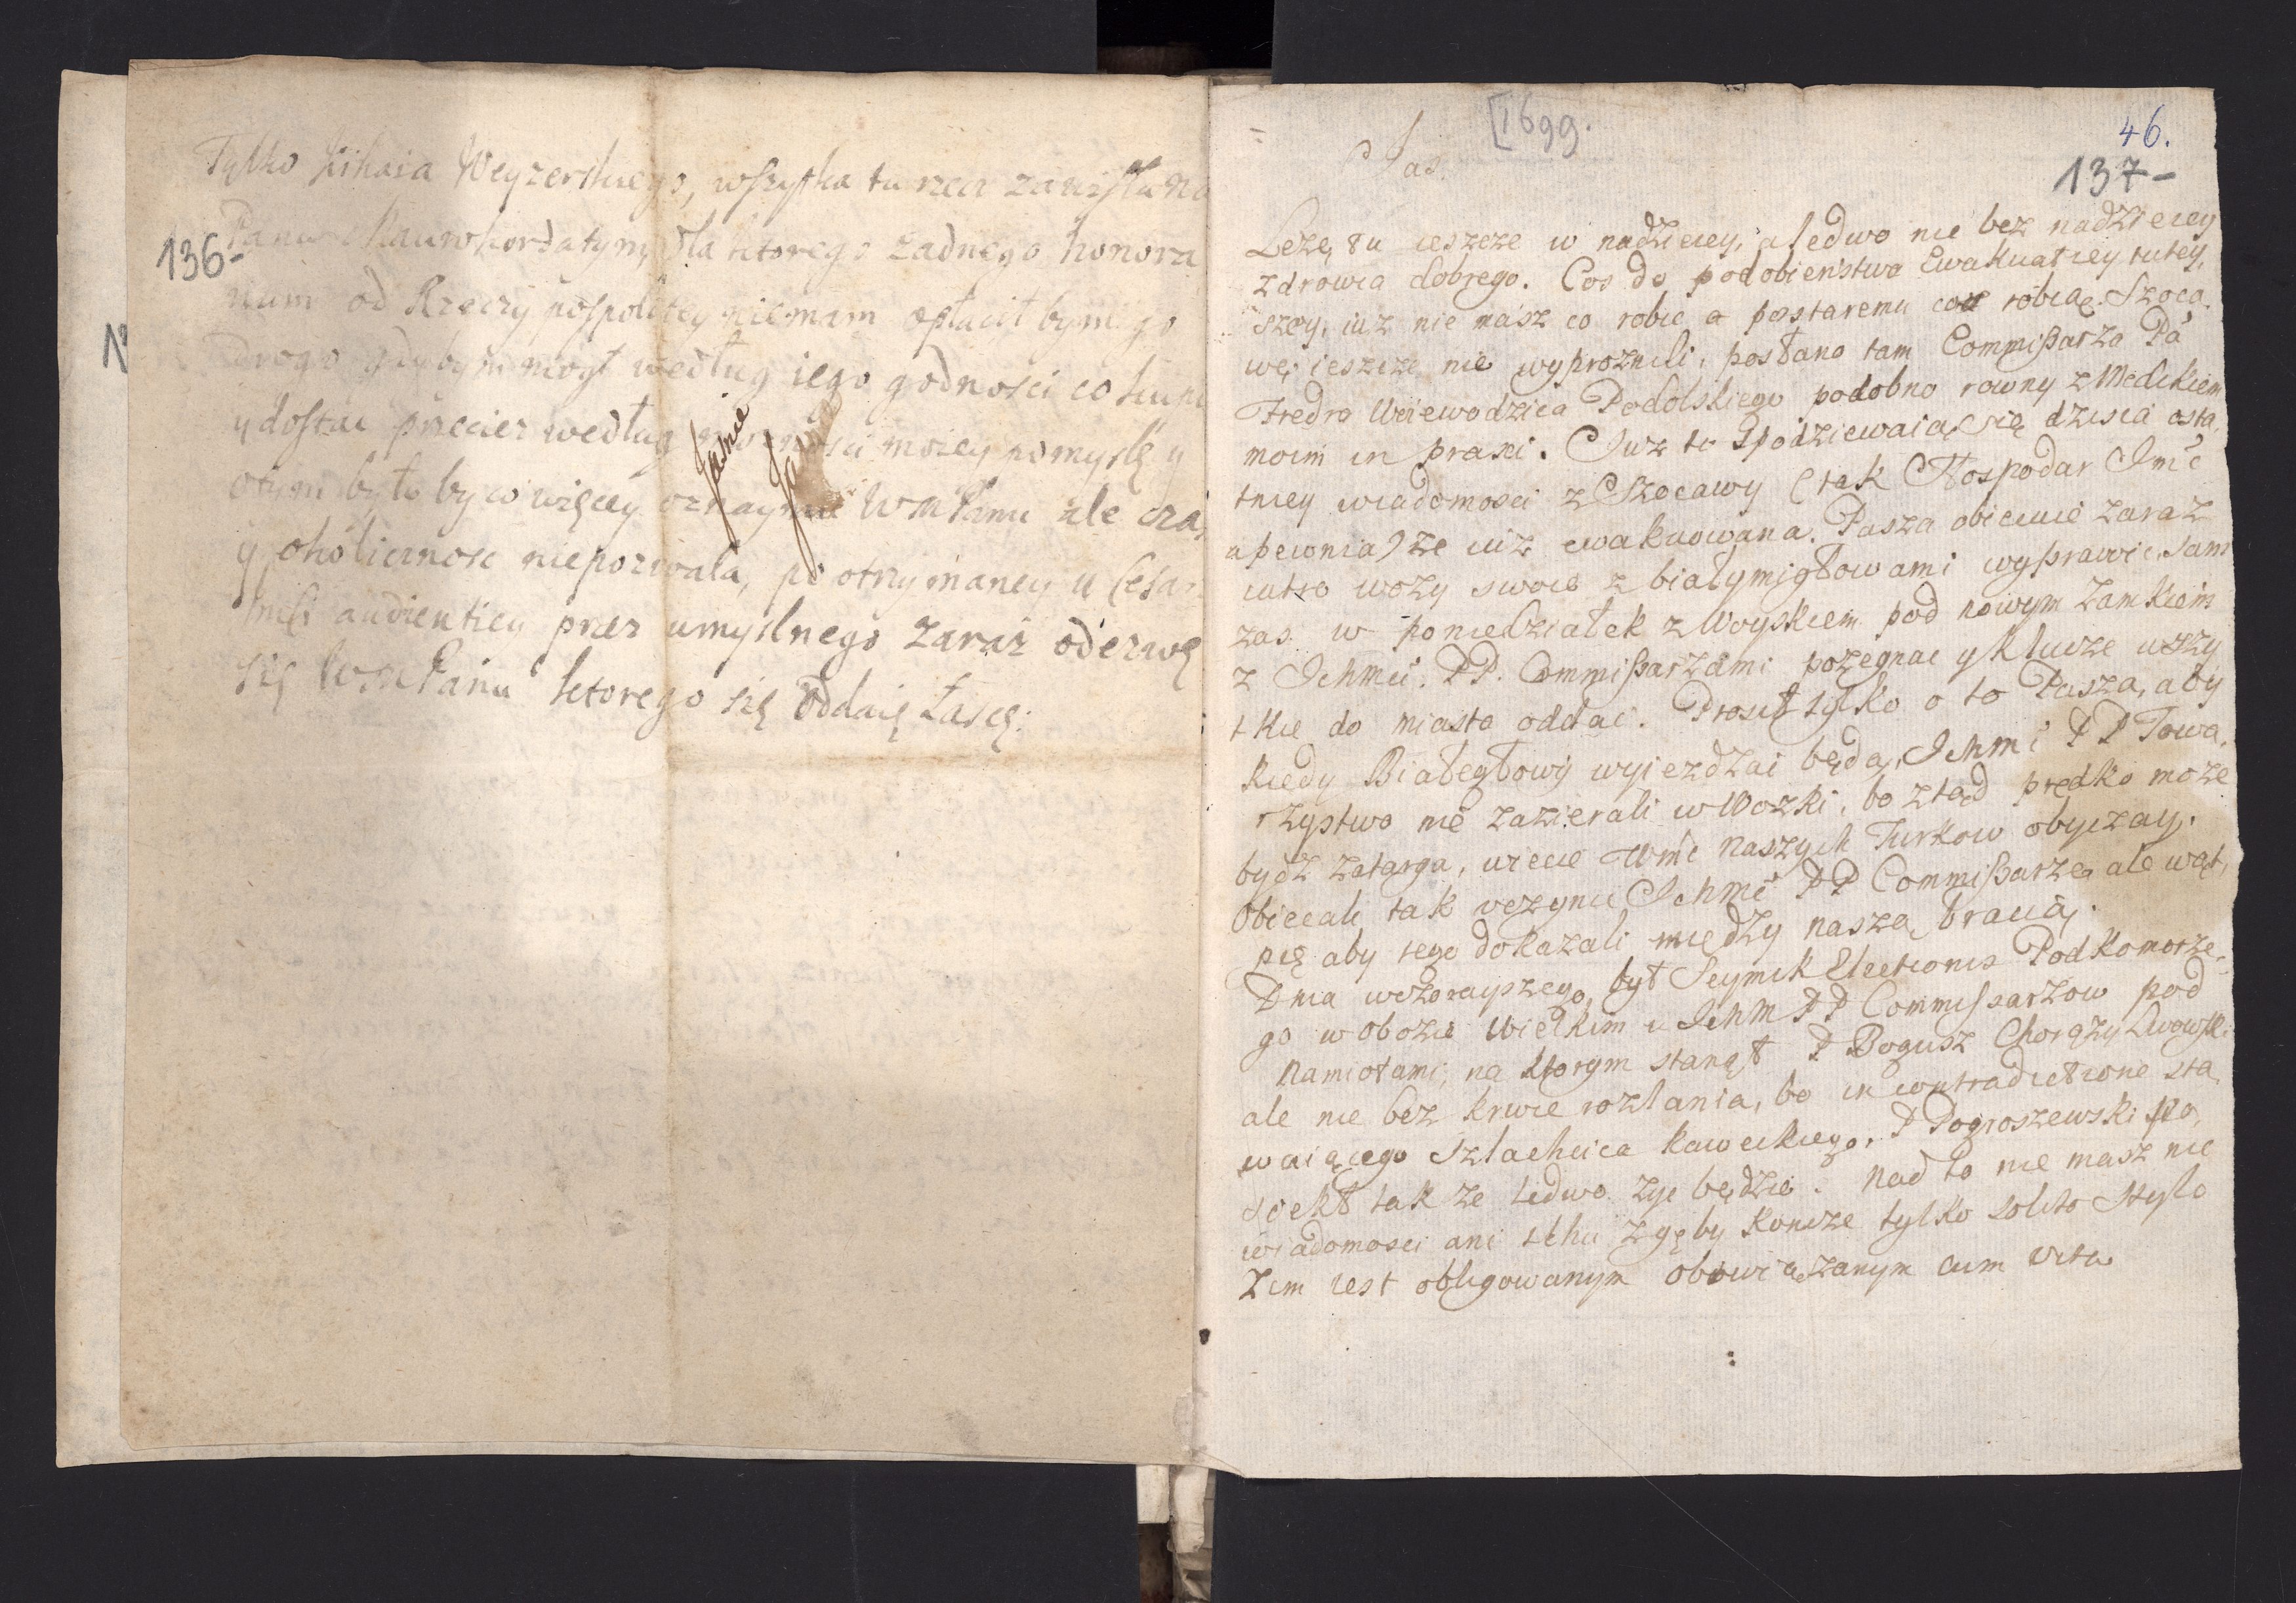 136-
Tylko kihaia Węgzerskiego, wszystka tu rzecz zawisła na
Panu Maurokordatym, dla ktorego żadnego honora
rium od Rzeczy pospolitey niemam opłacił bym go
drogo gdybym mogł według iego godności co kupi
y dostac przeciez według możności moiey pomyslę y
otym było by co więcey oznaymic WmPanu ale czas
y okolicznosc niepozwala, po otrzymaney u Cesar
audientiey przez umyslnego zaraz odezwę
się WmPanu ktorego się oddaię łascę.
Jasnie
[1699.
46.
137-
Jas
Leżę tu ieszcze w nadzieiey, a ledwo nie bez nadzieiey
zdrowia dobrego. Cos do podobieństwa Ewakuatiey tutey,
szey, iuz nie masz co robic a postaremu cos robią. Szoca,
wę ieszcze nie wyproznili, posłano tam Commißarza Pa
Fredra Woiewodzica Podolskiego podobno rowny z Medikiem
moim in praxi. Iuz to Spodziewaią się dzisia osta,
tniey wiadomosci z Szocawy (tak Hospodar Imc
upewnia) ze iuz ewakuowana. Pasza obiecuie zaraz
iutro wozy swoie z białymigłowami wyprawic, sam
zas w poniedziałek z Woyskiem pod nowym Zamkiem
z Ichmci PP. Commißarzami pozegnac y Klucze wszy
tkie do miasta oddac. Prosił tylko o to Pasza, aby
kiedy Białegłowy wyiezdzac będą, Ichmc PP Towa,
rzystwo nie zazierali w Wozki, bo ztąd prędko moze
bydz zatarga, wiecie Wmc naszych Turkow obyczay.
Obiecali tak uczynic Ichmc PP Commißarze, ale wąt,
pię aby tego dokazali między naszą bracią.
Dnia wczorayszego był Seymik Electionis Podkomorze,
go w obozie Wielkim u IchM PP Commissarzow pod
Namiotami, na ktorym stanął P Bogusz Chorązy Lwowski
ale nie bez krwie rozlania, bo in contradictione sta,
waiącego szlachcica Kaweckiego. P Pogroszewski po,
siekł tak ze ledwo zyc będzie. Nad to nie masz nic
wiadomosci ani tchu z gęby koncze tylko solito stylo
Zem iest obligowanym obowiązanym cum vita